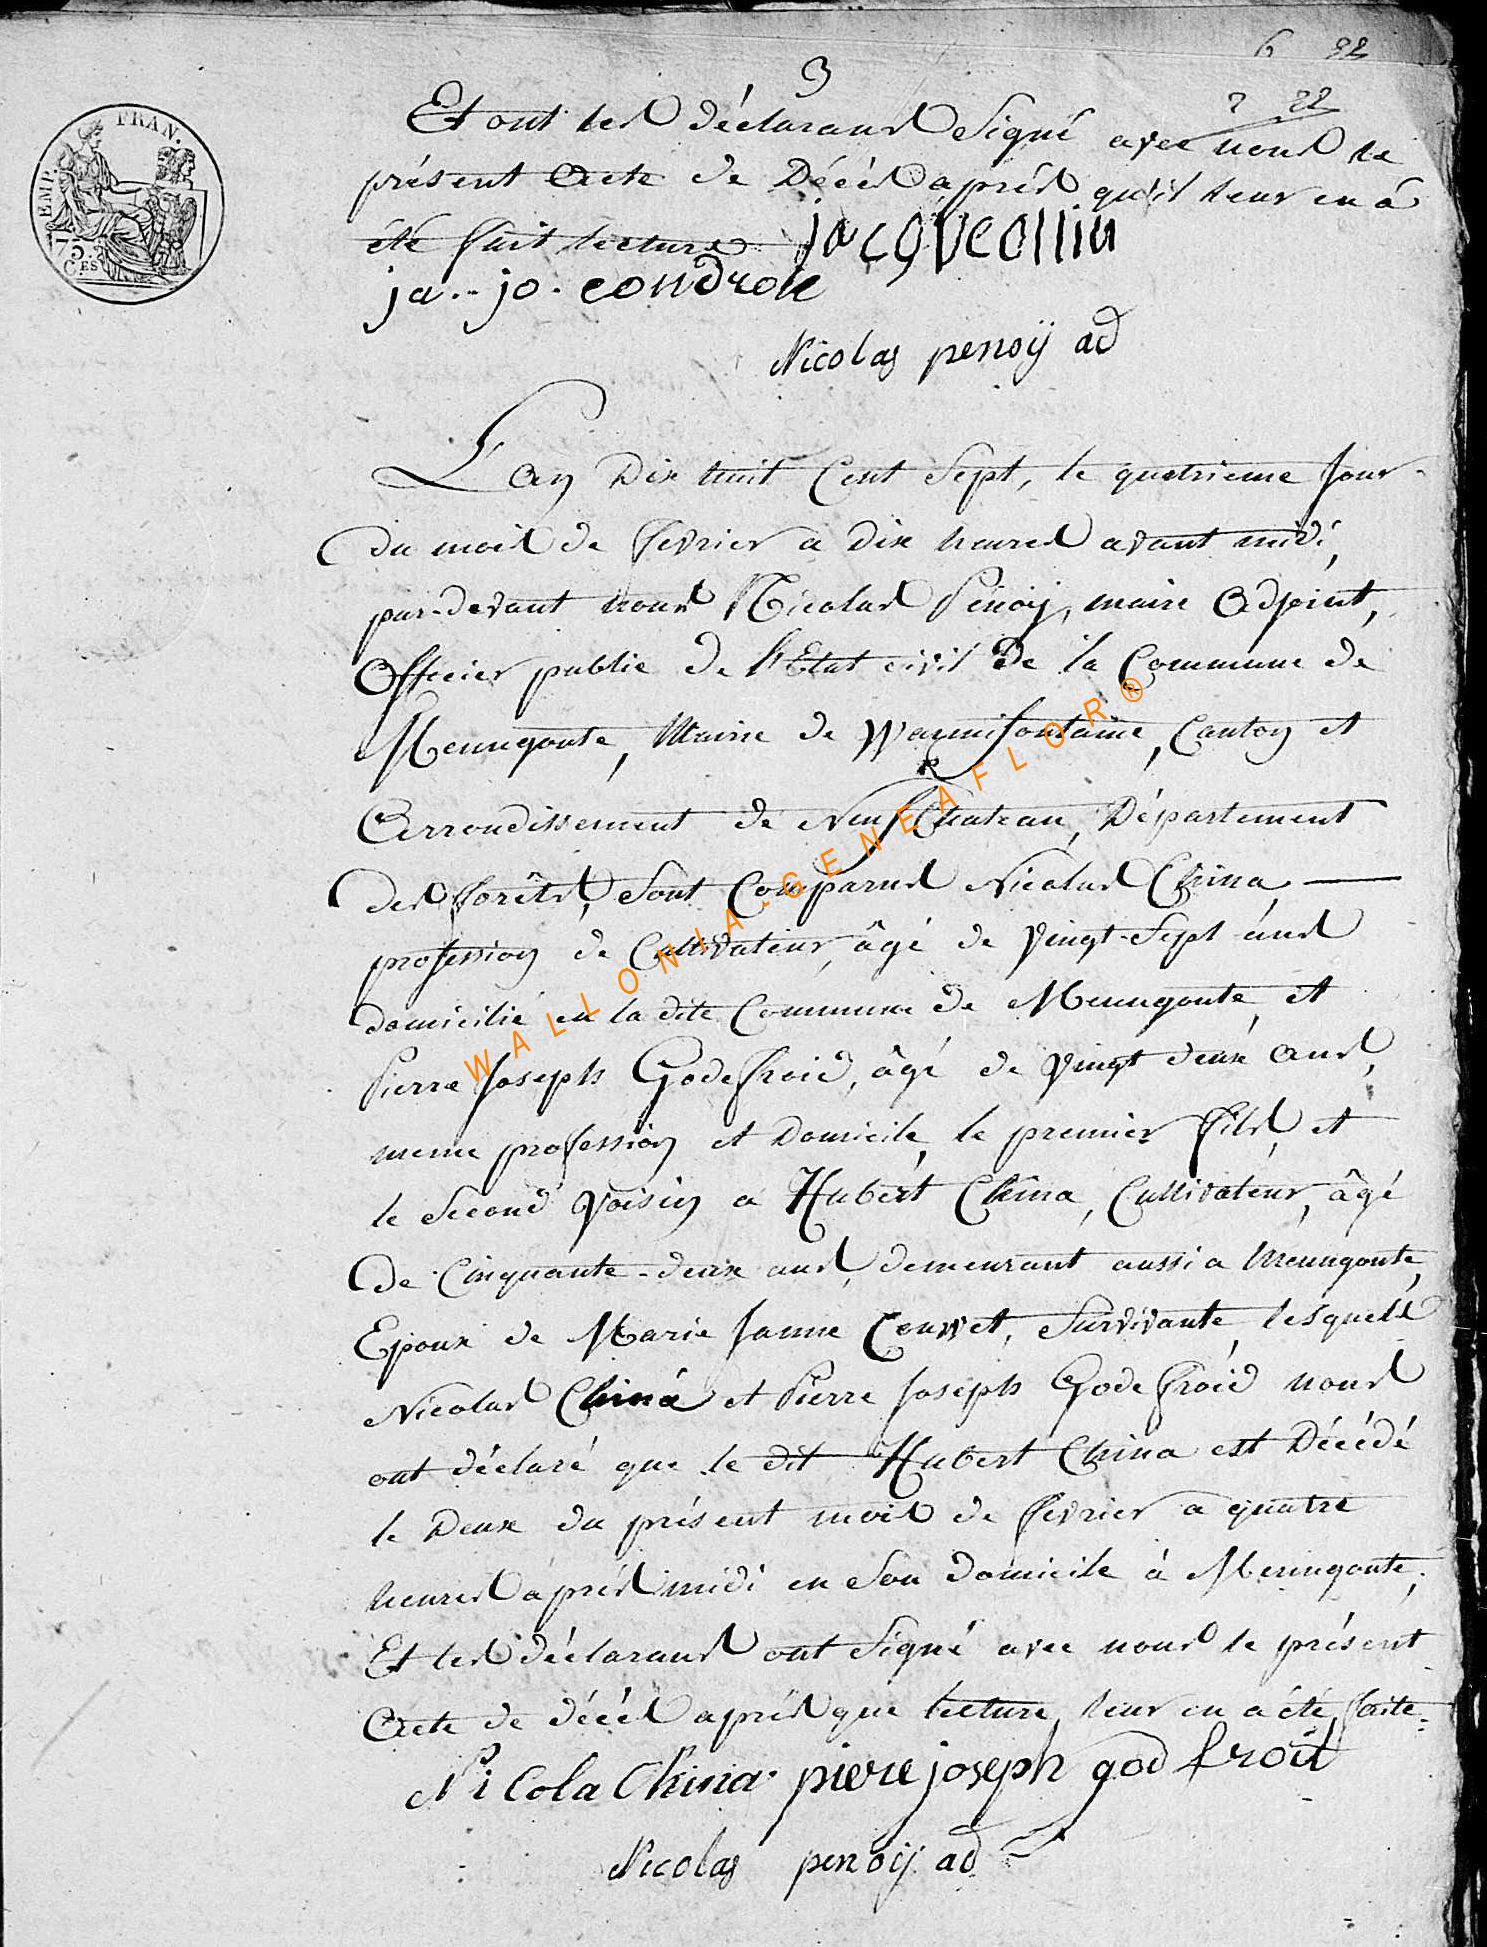 6 22
3
2 22
Et ont les déclarans Signé avec nous le
présent Acte de Décès après qu'il leur en a
été fait lecture
jacqve ollin
ja.. jo. condrok
Nicolas penoÿ ad
EMP. FRAN.
75
CES
L'an Dix huit Cent Sept, le quatrieme Jour
du mois de fevrier a dix heures avant midi,
par-devant nous Nicolas Penoij, maire Adjoint,
Officier public de l'Etat civil de la Commune de
Menugoute, Mairie de Warmifontaine, Canton et
Arrondissement de NeufChateau, Département
des forêts, Sont Comparus Nicolas China
profession de Cultivateur, âgé de vingt-Sept ans
domicilié en la dite Commune de Menugoute, et
Pierre Joseph Godefroid, âgé de vingt deux ans,
meme profession et Domicile, le premier fils, et
le Second Voisin a Hubert China, Cultivateur, âgé
de Cinquante-deux ans, demeurant aussi a Menugoute,
Epoux de Marie Janne Couvet, Survivante, lesquels
Nicolas China et Pierre Joseph Godefroid nous
ont déclaré que le dit Hubert China est Décédé
le Deux du présent mois de fevrier a quatre
heures après midi en Son domicile à Menugoute,
Et les déclarans ont Signé avec nous le présent
Acte de décès après que lecture leur en a été faite.
Nicola China. piere joseph god froit
Nicolas penoij ad
WALLONIA-GENEAFLOR®